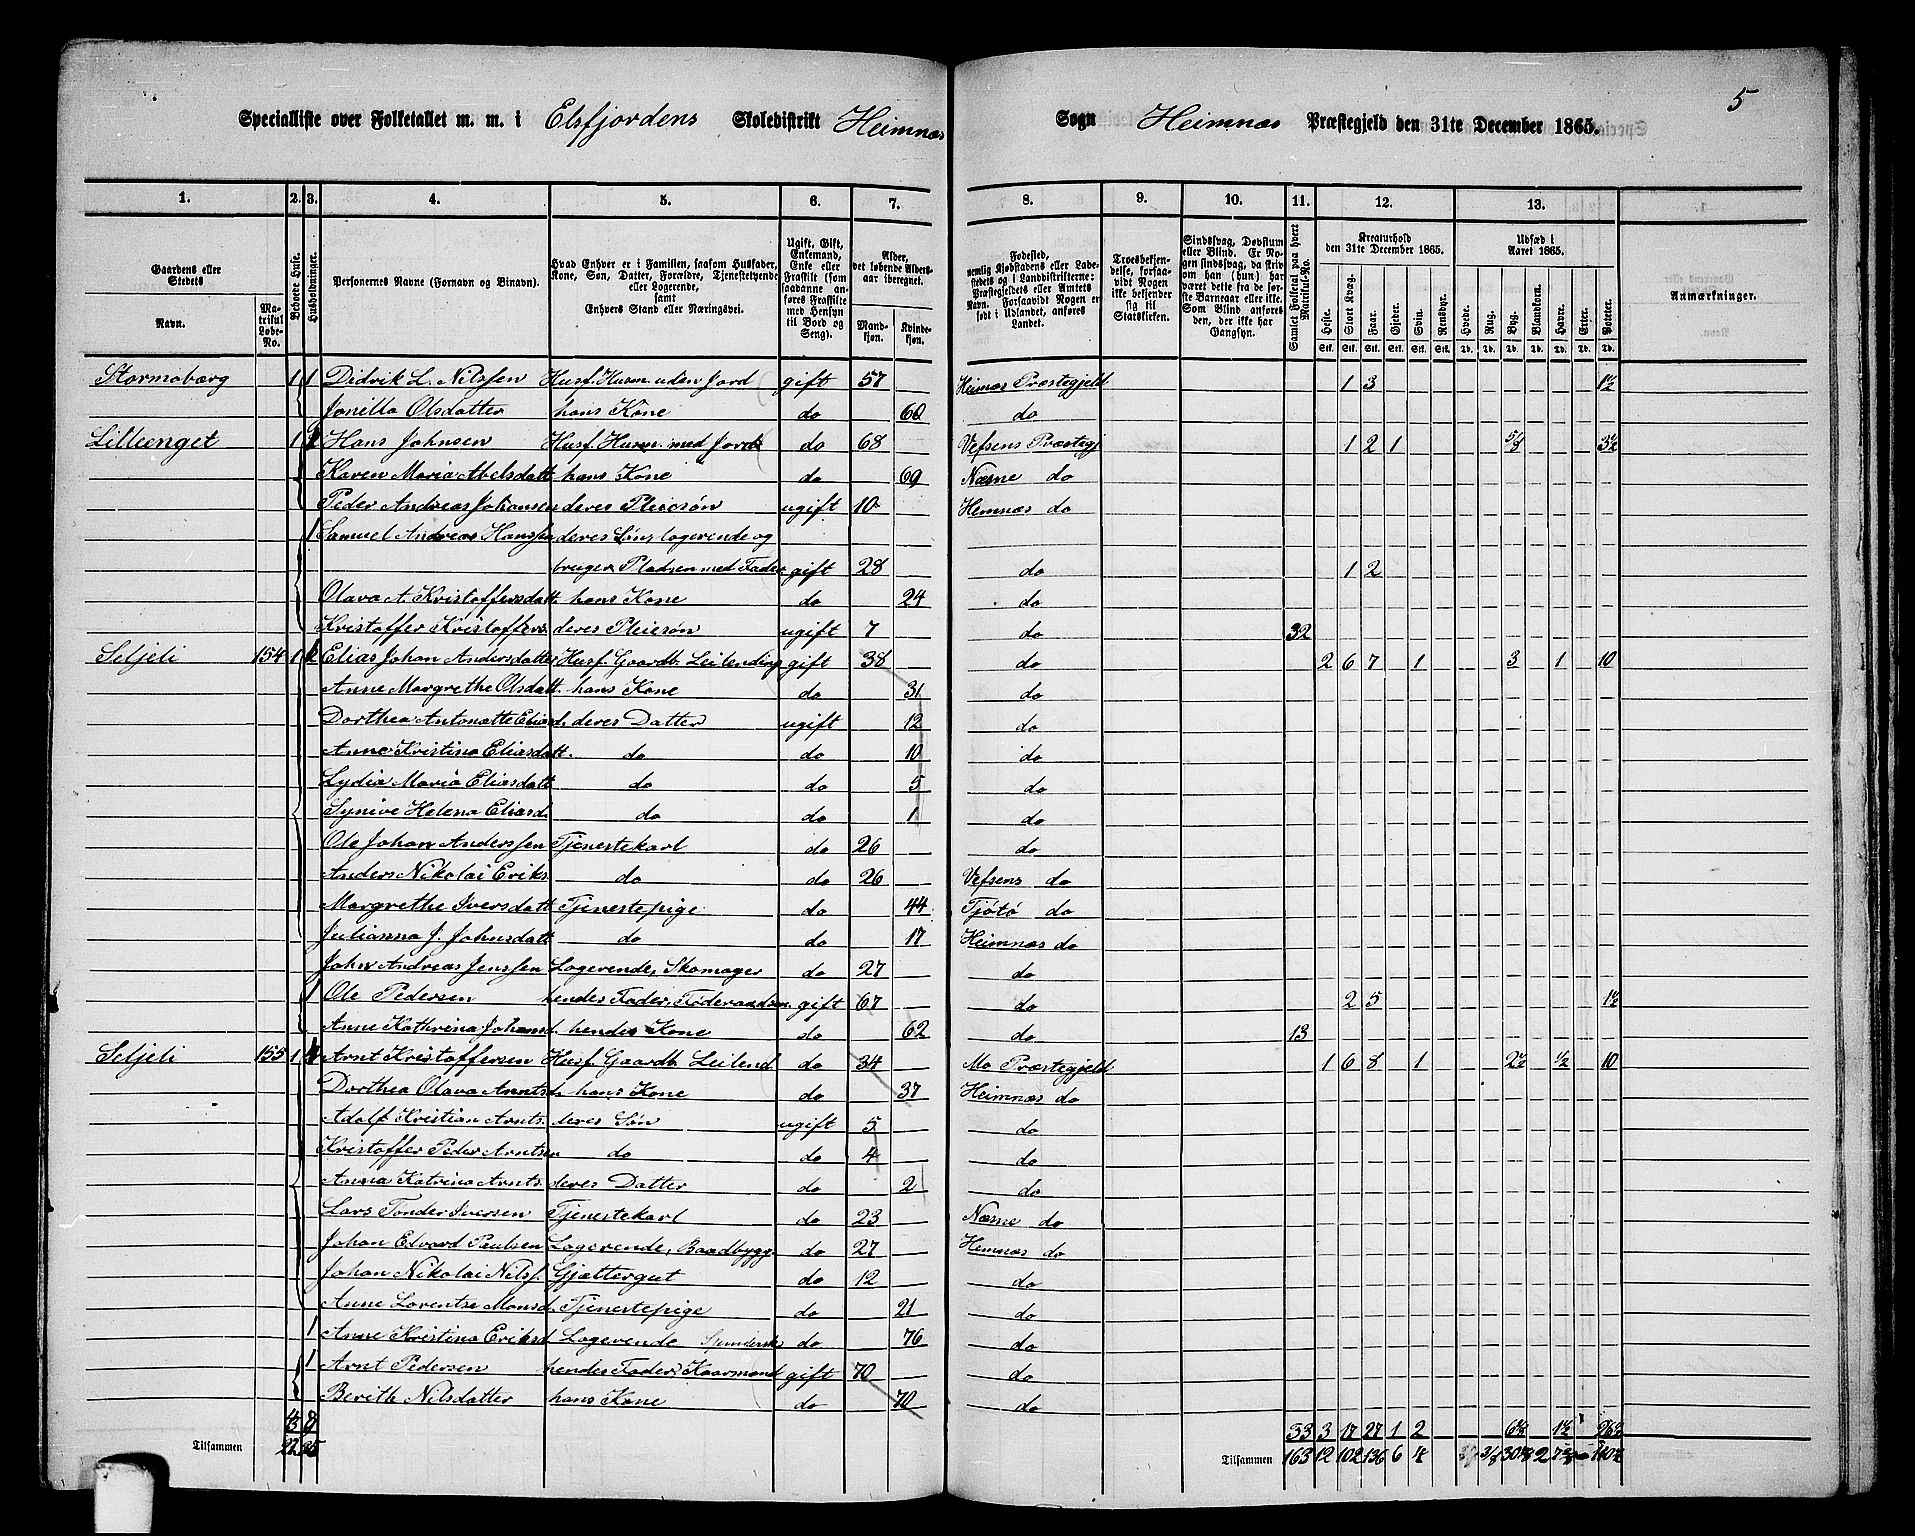 5
Specialliste over Folketallet m. m. i Elsfjordens Skoledistrikt Heimnæs Sogn Heimnæs Præstegjeld den 31te December 1865.
1. 2. 3. 4. 5. 6. 7. 8. 9. 10. 11. 12. 13.
Gaardens eller Stedets Navn. Matrikul Løbe-No.
Beboede Huse. Husholdninger.
Personernes Navne (Fornavn og Binavn).
Hvad Enhver er i Familien, saasom Husfader, Kone, Søn, Datter, Forældre, Tjenestetyende eller Logerende, samt Enhvers Stand eller Næringsvei.
Ugift, Gift, Enkemand, Enke eller Fraskilt (som saadanne anføres Fraskilte med Hensyn til Bord og Seng).
Alder, det løbende Alders-aar iberegnet. Mandkjøn. Kvindekjøn.
Fødested, nemlig Kjøbstadens eller Ladestedets og i Landdistrikterne: Præstegjeldets eller Amtets Navn. Forsaavidt Nogen er født i Udlandet, anføres Landet.
Troesbekjendelse, forsaavidt Nogen ikke bekjender sig til Statskirken.
Sindssvag, Døvstum eller Blind. Er Nogen sindssvag, da skrives om han (hun) har været det fra de første Barneaar eller ikke. Som Blind anføres den, der ikke har Gangsyn.
Samlet Folketal paa hvert Matrikul-No.
Kreaturhold den 31te December 1865. Heste. Stort Kvæg. Faar. Gjeder. Svin. Rensdyr.
Udsæd i Aaret 1865. Hvede. Rug. Byg. Blandkorn. Havre. Erter. Poteter.
Anmærkninger.
Stormobærg 1 1 Didrik L. Nilssen Husf. Husm. uden Jord gift 57 Heimnæs Præstegjeld 1 3 1½
Jonilla Olsdatter hans Kone do 60 do
Lilleenget 1 Hans Johnsen Husf. Husm. med Jord do 68 Vefsens Præstegj 1 2 1 3½
Karen Maria Abelsdatt hans Kone do 69 Næsne do
Peder Andreas Johansen deres Pleiesøn ugift 10 Hemnæs do
1 Samuel Andreas Hanssen deres Søn, logerende og
bruger Pladsen med Fader gift 28 do 1 2
Olava A. Kristoffersdatt. hans Kone do 24 do
Kristoffer Kristoffers. deres Pleiesøn ugift 7 do 32
Seljeli 154 1 Elias Johan Andersdatter Husf. Gaardb. Leilending gift 38 do 2 6 7 1 3 1 10
Anne Margrethe Olsdatt. hans Kone do 31 do
Dorthea Antonætte Eliasd. deres Datter ugift 12 do
Anne Kristina Eliasdatt. do do 10 do
Lydia Maria Eliasdatt do do 5 do
Synive Helena Eliasd. do do 1 do
Ole Johan Anderssen Tjenestekarl do 26 do
Anders Nikolai Eriks. do do 26 Vefsens do
Margrethe Iversdatt Tjenestepige do 44 Tjøtø do
Julianna J. Johnsdatt do do 17 Heimnæs do
John Andreas Jenssen Logerende, Skomager do 27 do
1 Ole Pedersen hendes Fader, Føderaadsm. gift 67 do 2 5 1½
Anne Kathrina Johansd. hendes Kone do 62 do 13
Seljeli 155 1 Arnt Kristoffersen Husf. Gaardb. Leilend do 34 Mo Præstegjeld 1 6 8 1 2½ ½ 10
Dorthea Olava Arntsd. hans Kone do 37 Heimnæs do
Adolf Kristian Arnts. deres Søn ugift 5 do
Kristoffer Peder Arntsen do do 4 do
Anna Katrina Arnts. deres Datter do 2 do
Lars Tønder Iversen Tjenestekarl do 23 Næsne do
Johan Edvard Paulsen Logerende, Baadbygg. do 27 Hemnæs do
Johan Nikolai Nilss. Gjættergut do 12 do
Anne Lorentse Monsd. Tjenestepige do 21 do
1 Anne Kristina Eriksd Logerende do 76 do
1 Arnt Pedersen hendes Fader, Kaarmand gift 70 do
Berith Nilsdatter hans Kone do 70 do
33 3 17 27 1 2 1½
Tilsammen Tilsammen 163 12 102 136 6 4